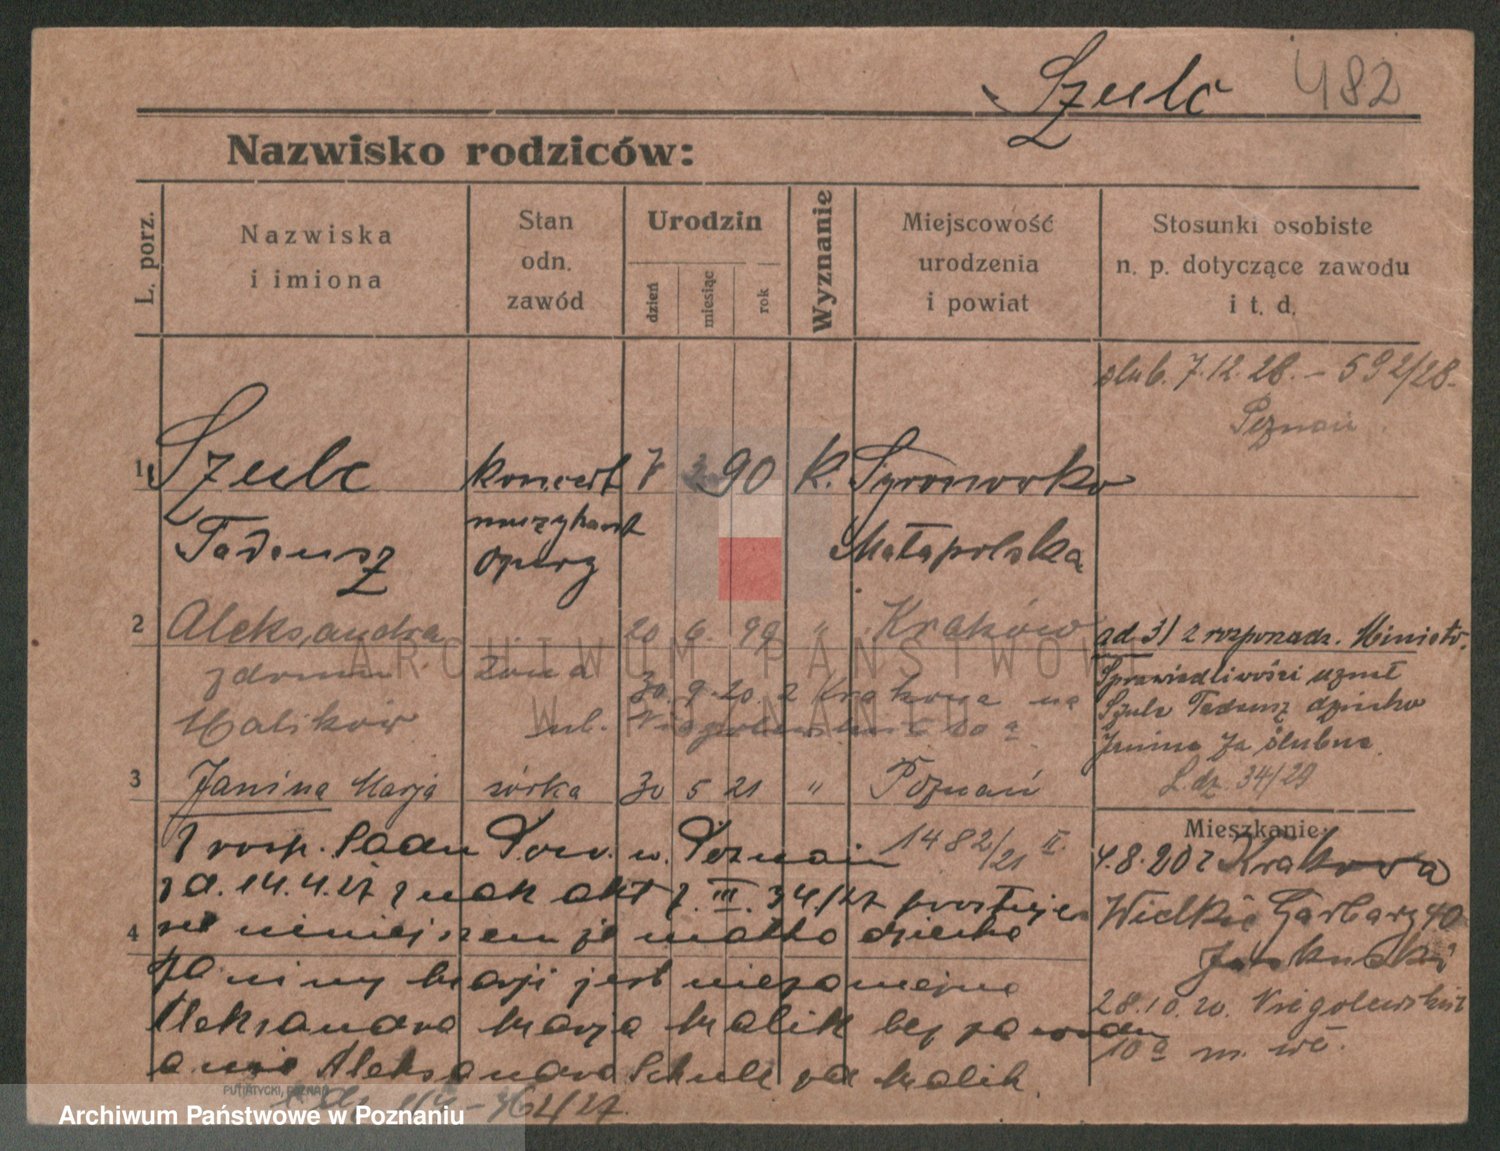 Szulc 482
Nazwisko rodziców:
L. porz.
Nazwiska
i imiona
Stan
odn.
zawód
Urodzin
dzień
miesiąc
rok
Wyznanie
Miejscowość
urodzenia
i powiat
Stosunki osobiste
n. p. dotyczące zawodu
i t. d.
ślub. 7.12.28. – 592/28.
Poznań.
1 Szulc koncert 7 90 K.
Tadeusz muzykant Małapolska
opery
2 Aleksandra żona 20 6. 99 " Kraków
z domu 30.9.20. z Krakowa na
Malików ul.
ad 3/ z rozporządz. Ministr.
Sprawiedliwości uznał
Szulc Tadeusz dziecko
Janina za ślubne
L.dz. 34/29
3 Janina Marja córka 30 5 21 " Poznań
1482/21 II.
Mieszkanie:
4.8.20 z Krakowa
Wielkie Garbary 40
28.10.20. Niegolewskich
10a m.
Z rosp. Sądu Pow. w. Poznaniu
zd. 14.4.27 znak akt 7. III. 34/27 prostuje
4 się niniejszem że matka dziecka
Janiny Marji jest niezamężna
Aleksandra Marja Malik bez zawodu
a nie Aleksandra Schulz zd. Malik.
PUTIATYCKI, POZNAŃ
ARCHIWUM PAŃSTWOWE
W POZNANIU
Archiwum Państwowe w Poznaniu